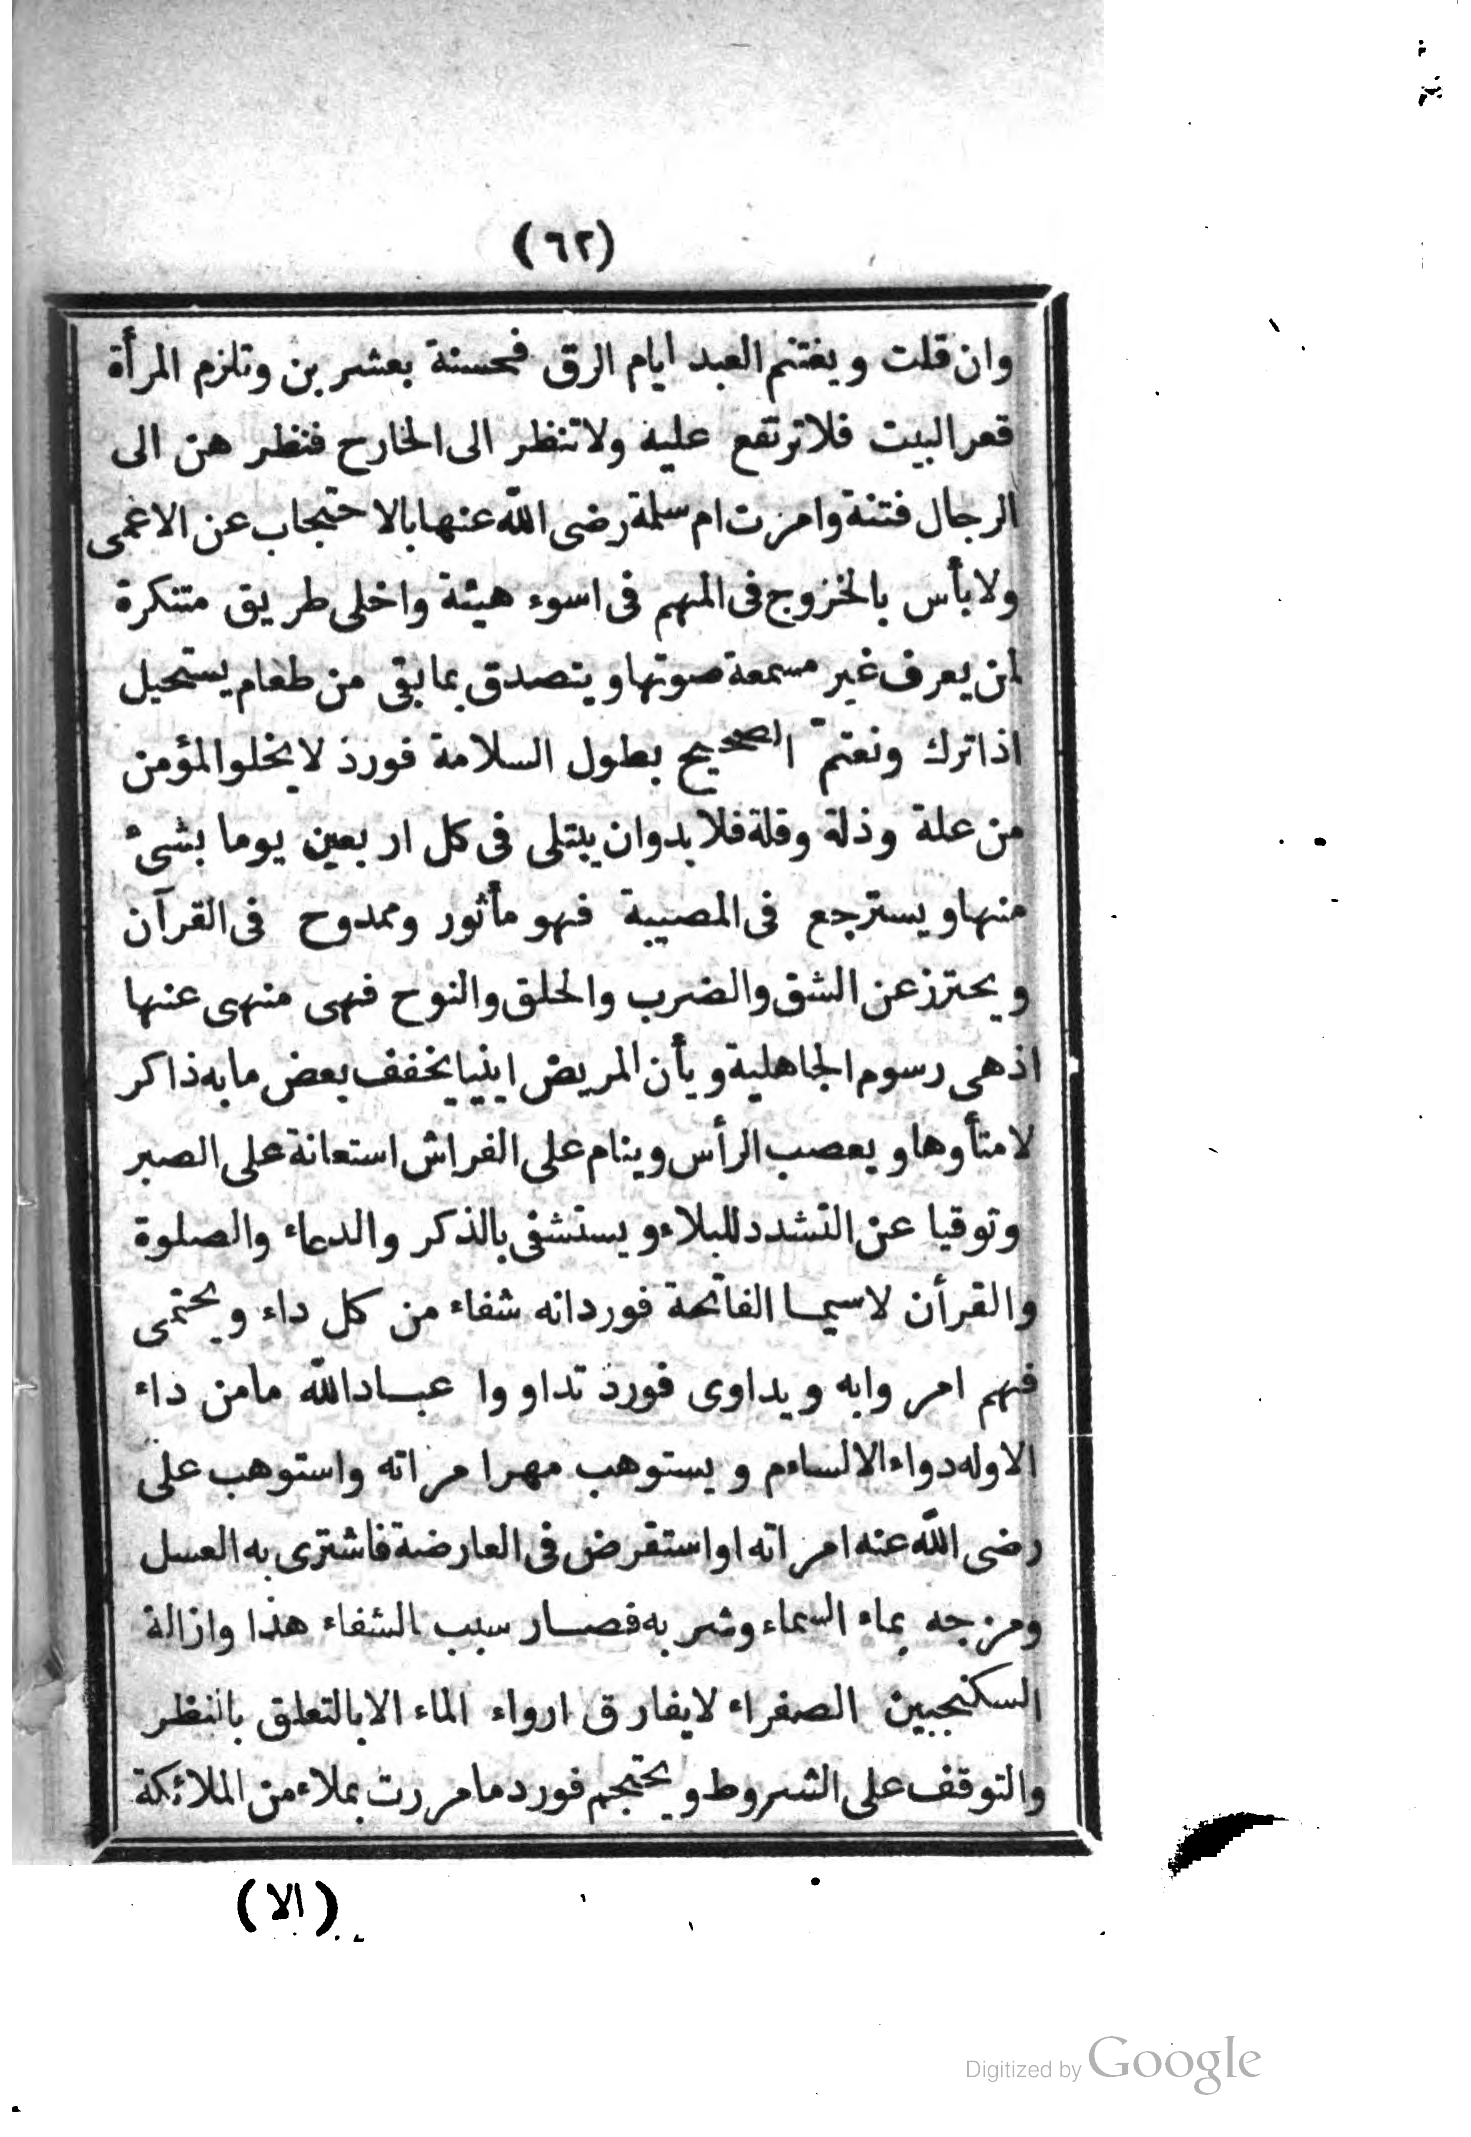 (٦٢)
وان قلت ويغتنم العبد ايام الرق فحسنة بعشرين وتلزم المرأة
قعر البيت فلا ترتفع عليه ولا تنظر الى الخارج فنظرهن الى
الرجال فتنة وامرت ام سلمة رضى الله عنها بالاحتجاب عن الاعمى
ولا بأس بالخروج فى المهم فى اسوء هيئة واخلى طريق متنكرة
لمن يعرف غير مسمعة صوتها ويتصدق بما بقى من طعام يستحيل
اذا ترك ونغتم الصحيح بطول السلامة فورد لا يخلو المؤمن
من علة وذلة وقلة فلا بد وان يبتلى فى كل اربعين يوما بشئ
منها ويسترجع فى المصيبة فهو مأثور وممدوح فى القرآن
ويحترز عن الشق والضرب والحلق والنوح فهى منهى عنها
اذ هى رسوم الجاهلية ويأن المريض انينا يخفف بعض ما به ذاكر
لا متأوها ويعصب الرأس وينام على الفراش استعانة على الصبر
وتوقيا عن التشدد للبلاء ويستشفى بالذكر والدعاء والصلوة
والقرأن لاسيما الفاتحة فورد انه شفاء من كل داء ويحتمى
فهم امروا به ويداوى فورد تداووا عباد الله ما من داء
الا وله دواء الا السام ويستوهب مهر امراته واستوهب على
رضى الله عنه امراته او استقرض فى العارضة فاشترى به العسل
ومزجه بماء السماء وشربه فصار سبب الشفاء هذا وازالة
السكنجبين الصفراء لا يفارق ارواء الماء الا بالتعلق بالنظر
والتوقف على الشروط ويحتجم فورد ما مررت بملاء من الملائكة
(الا)
Digitized by Google